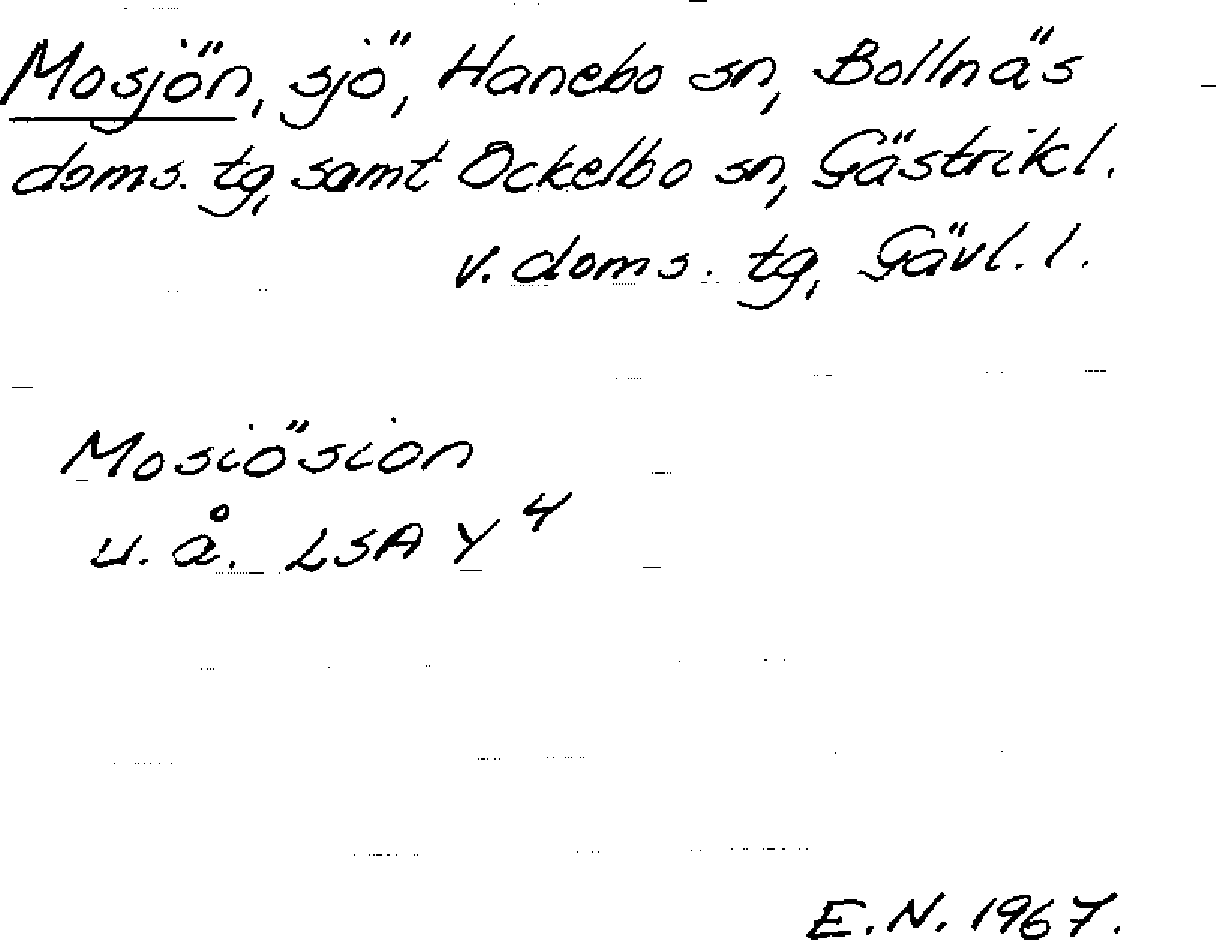 Mosjön, sjö, Hanebo sn, Bollnäs
doms. tg, samt Ockelbo sn, Gästrikl.
v. doms. tg, Gävl. l.
Mosiösion
u. å. LSA Y 4
E.N. 1967.